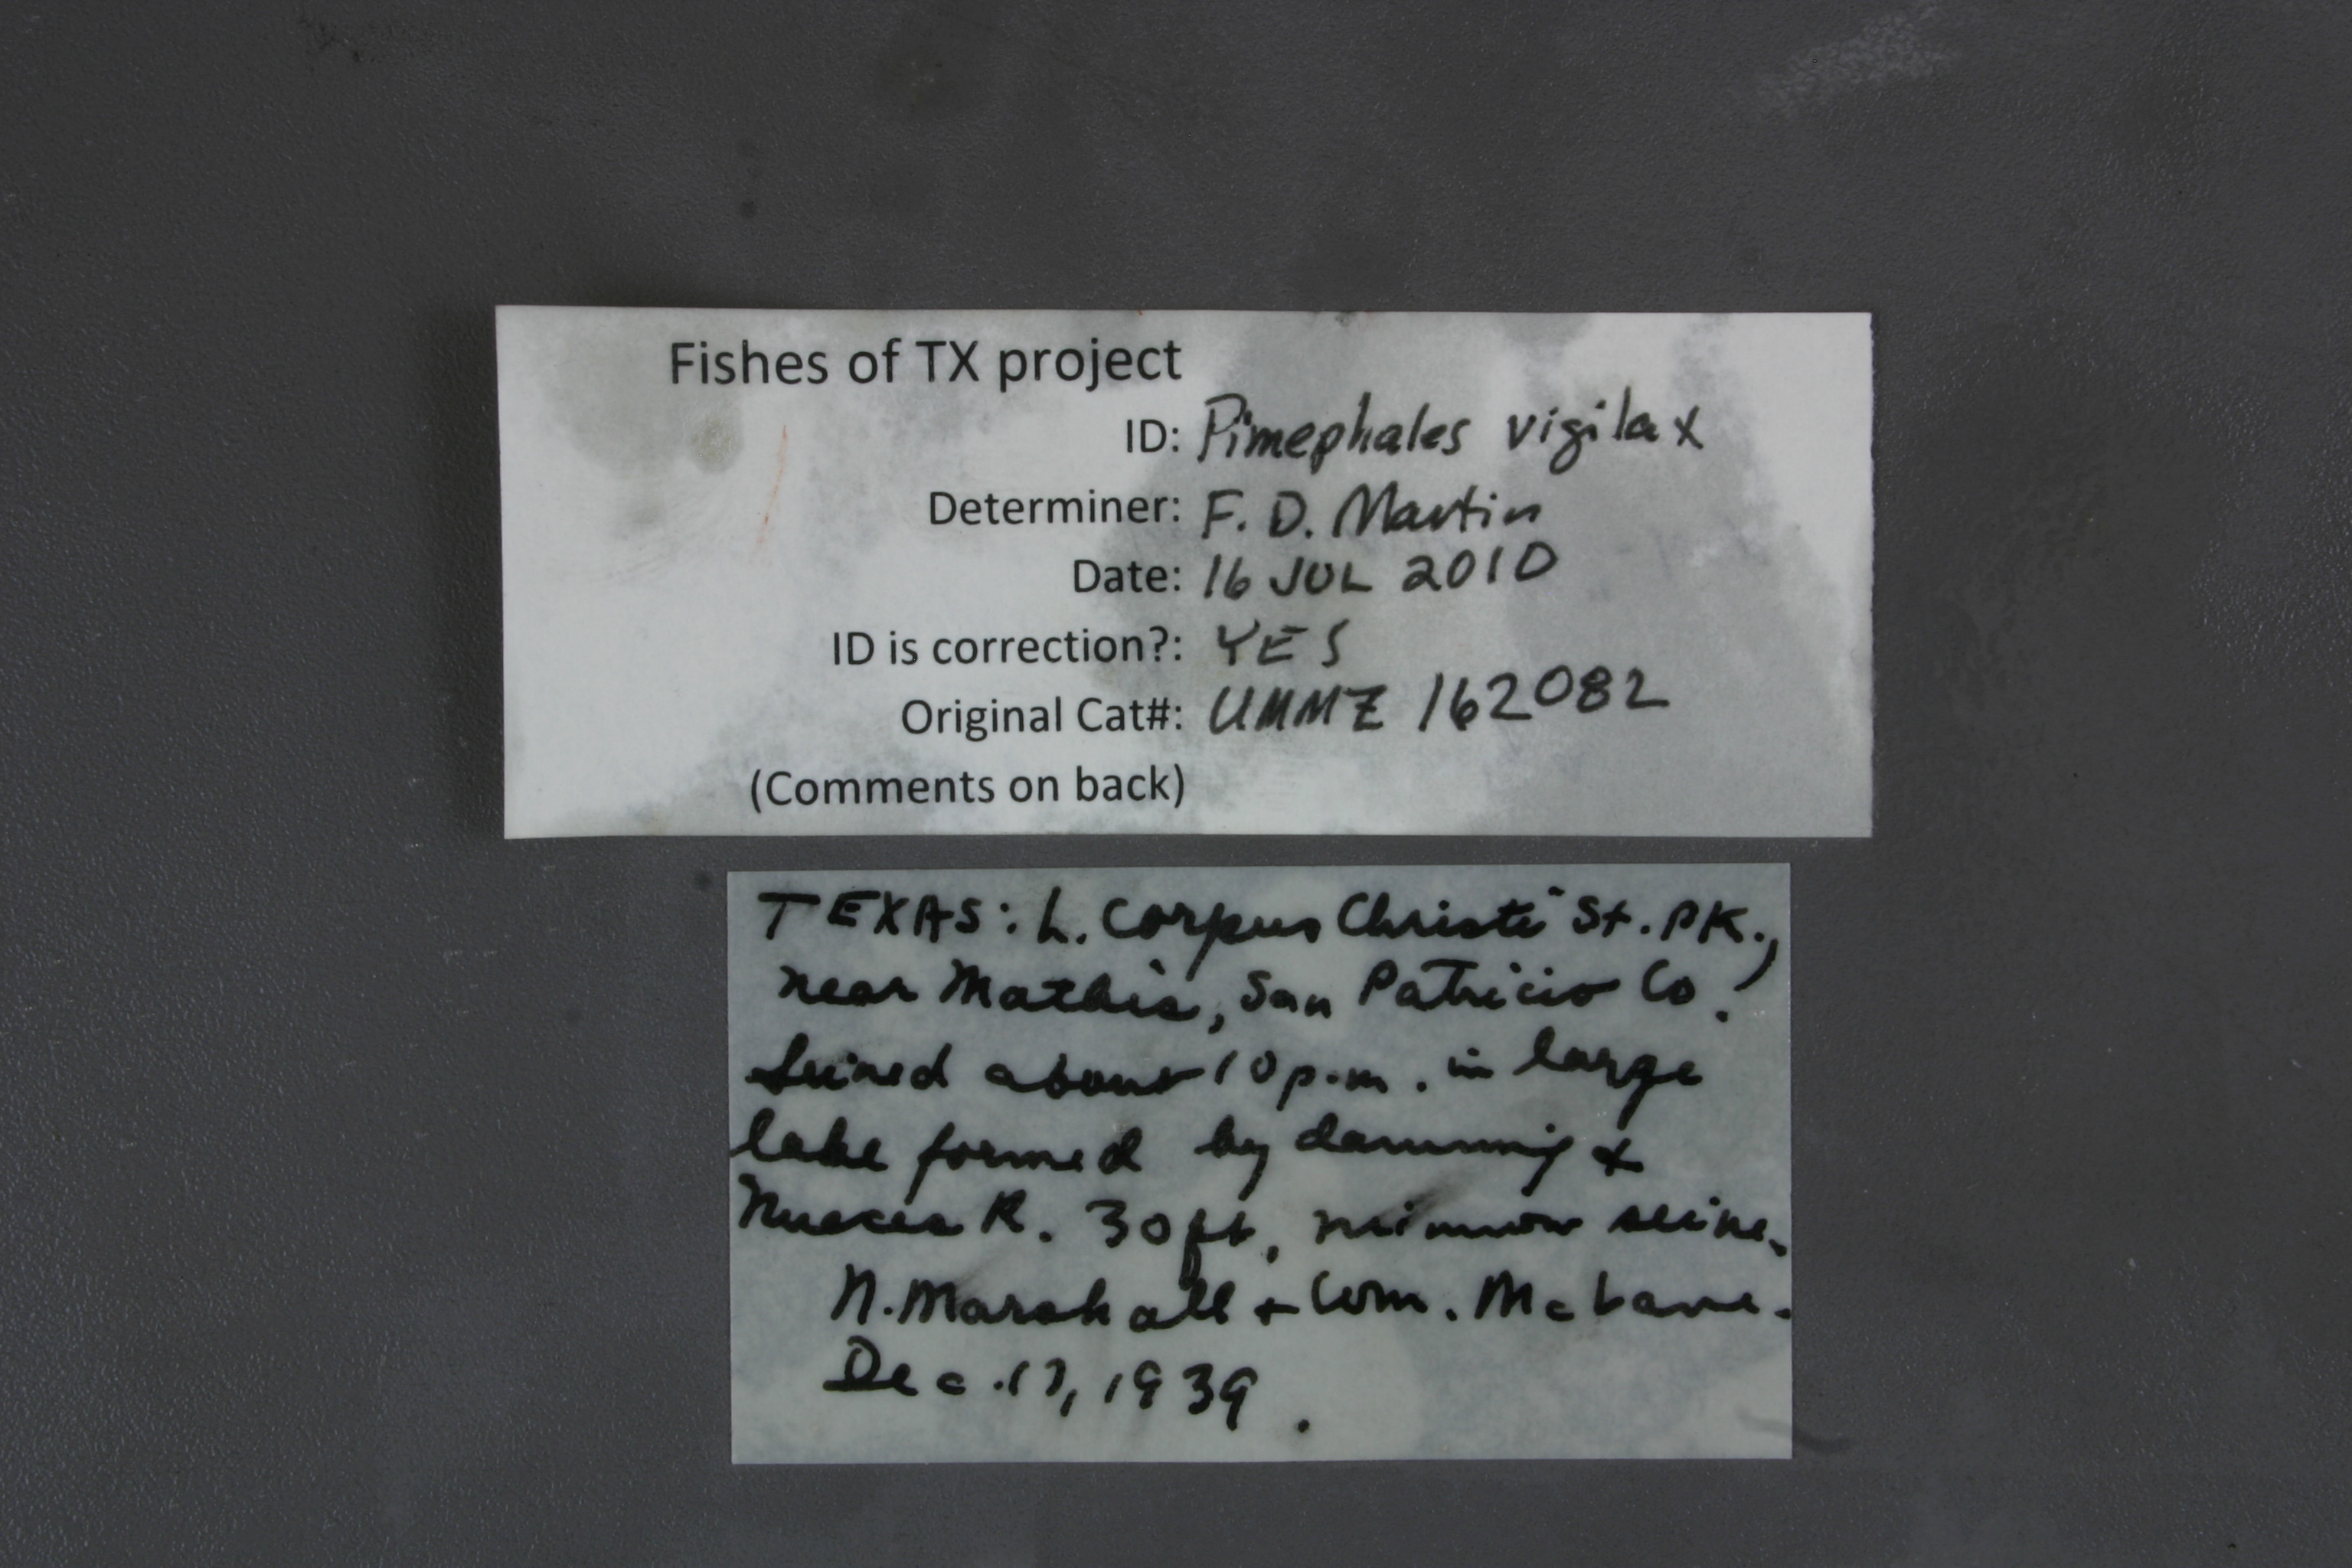 Fishes of TX project
ID: Pimephales vigilax
Determiner: F. D. Martin
Date: 16 JUL 2010
ID is correction?: YES
Original Cat#: UMMZ 162082
(Comments on back)
TEXAS: L. Corpus Christi St. PK.,
near Mathis, San Patricio Co.
Seined about 10 p.m. in large
lake formed by damming
Nueces R. 30 ft. minnow seine.
N. Marshall + Wm. McLane.
Dec. 17, 1939.